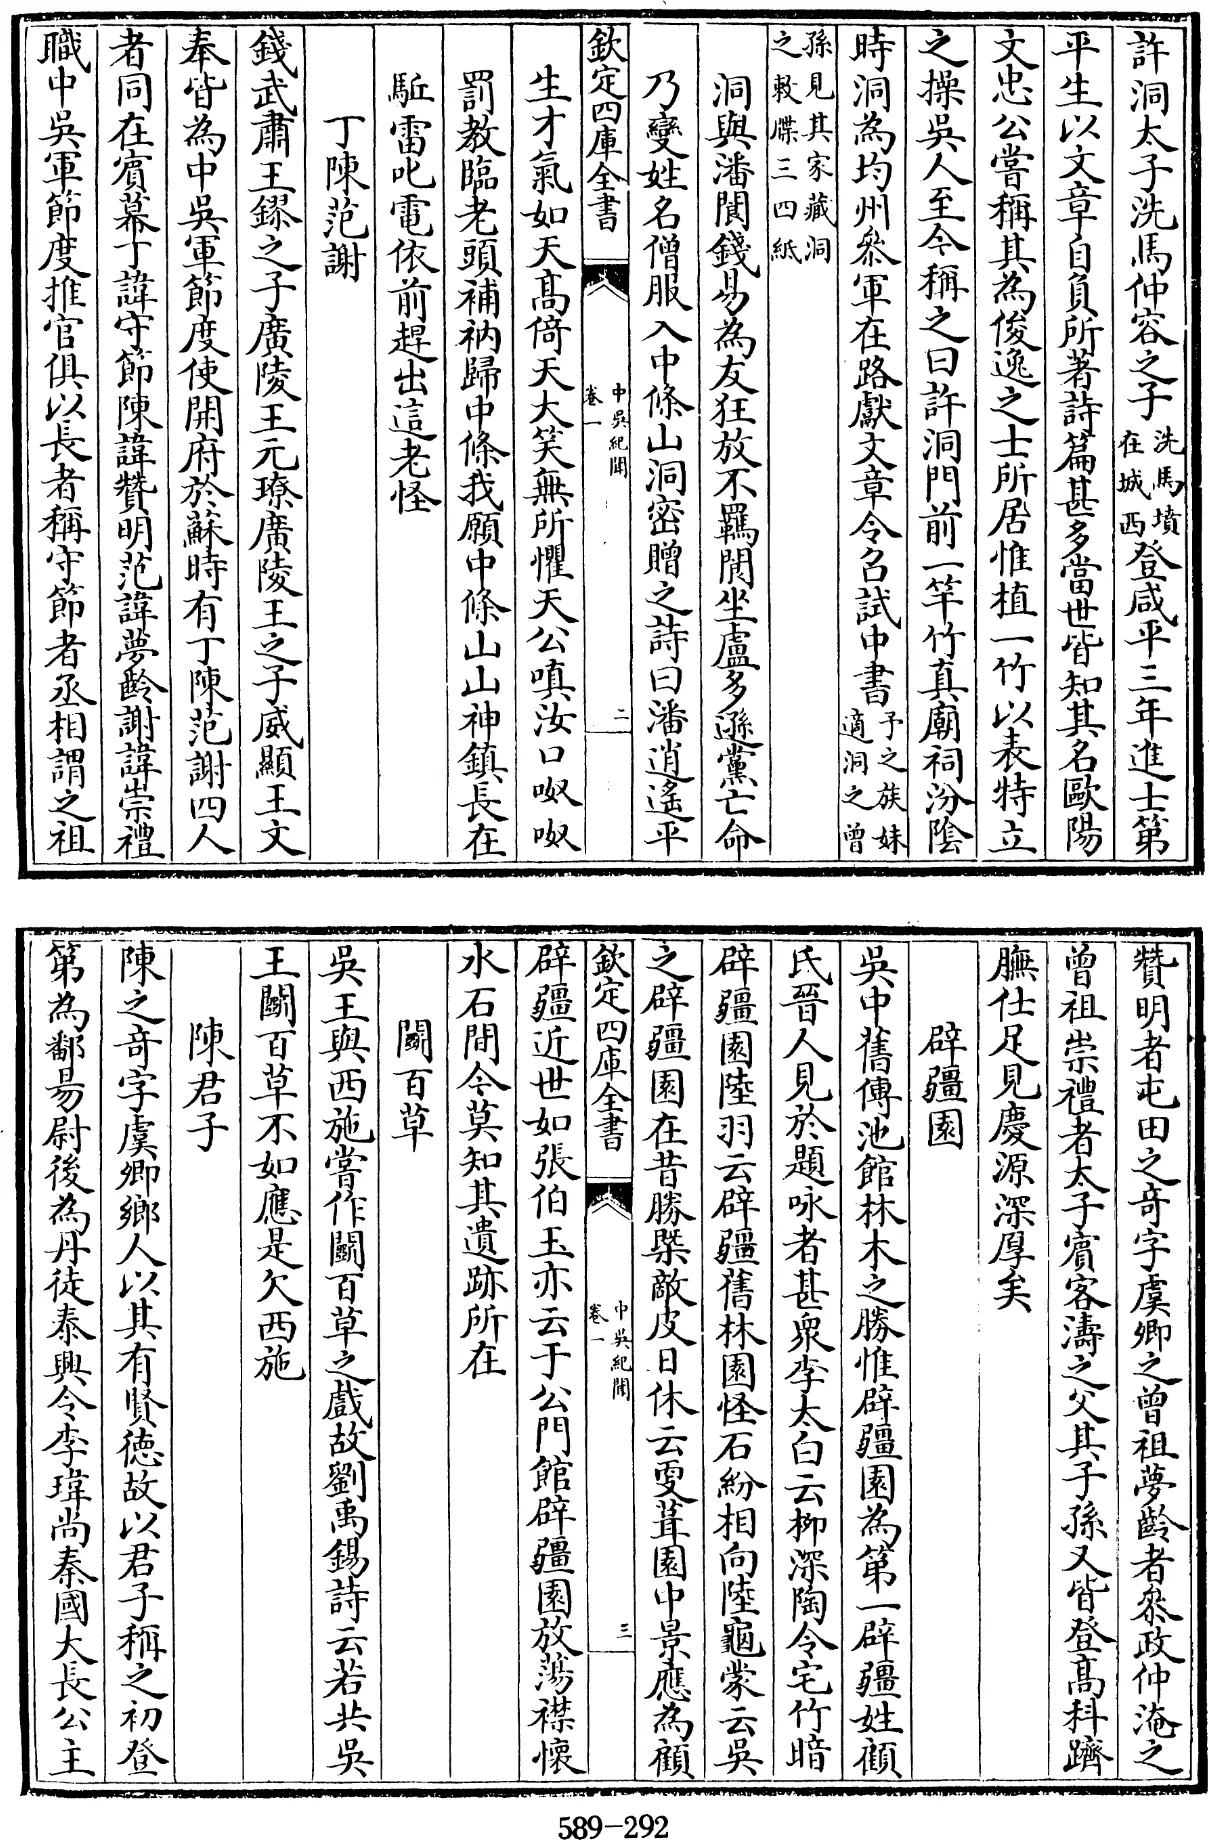 許洞太子洗馬仲容之子洗馬墳在城西登咸平三年進士第
平生以文章自負所著詩篇甚多當世皆知其名歐陽
文忠公嘗稱其為俊逸之士所居惟植一竹以表特立
之操吳人至今稱之曰許洞門前一竿竹真廟祠汾陰
時洞為均州叅軍在路獻文章令召試中書予之族妹適洞之曾
孫見其家藏洞之敕牒三四紙
洞與潘閬錢易為友狂放不羈閬坐盧多遜黨亡命
乃變姓名僧服入中條山洞密贈之詩曰潘逍遙平
欽定四庫全書
中吳紀聞
卷一
二
生才氣如天高倚天大笑無所懼天公嗔汝口呶呶
罰教臨老頭補衲歸中條我願中條山山神鎮長在
駈雷叱電依前趕出這老怪
丁陳范謝
錢武肅王鏐之子廣陵王元璙廣陵王之子威顯王文
奉皆為中吳軍節度使開府於蘇時有丁陳范謝四人
者同在賓幕丁諱守節陳諱贊明范諱夢齡謝諱崇禮
職中吳軍節度推官俱以長者稱守節者丞相謂之祖
贊明者屯田之奇字虞卿之曾祖夢齡者叅政仲淹之
曾祖崇禮者太子賓客濤之父其子孫又皆登高科躋
膴仕足見慶源深厚矣
辟疆園
吳中舊傳池館林木之勝惟辟疆園為第一辟疆姓顧
氏晉人見於題咏者甚衆李太白云柳深陶令宅竹暗
辟疆園陸羽云辟疆舊林園怪石紛相向陸龜蒙云吳
之辟疆園在昔勝槩敵皮日休云更葺園中景應為顧
欽定四庫全書
中吳紀聞
卷一
三
辟疆近世如張伯玉亦云于公門館辟疆園放蕩襟懷
水石間今莫知其遺跡所在
鬭百草
吳王與西施嘗作鬭百草之戲故劉禹錫詩云若共吳
王鬭百草不如應是欠西施
陳君子
陳之奇字虞卿鄉人以其有賢德故以君子稱之初登
第為鄱昜尉後為丹徒泰興令李瑋尚秦國大長公主
589-292